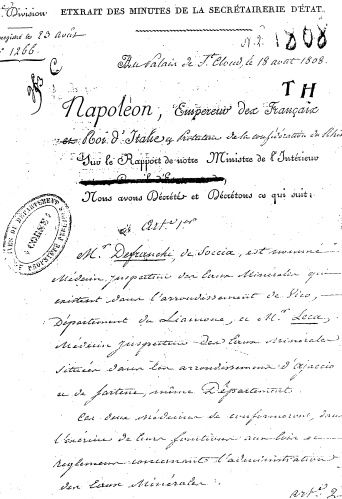 Division
EXTRAIT DES MINUTES DE LA SECRÉTAIRERIE D'ÉTAT.
enregistré le 23 août
N° 1266.
N. 2. 1808
C
Au Palais de St Cloud, le 18 août 1808.
T H
Napoléon, Empereur des Français
Roi d'Italie et Protecteur de la confédération du Rhin
Sur le Rapport de notre Ministre de l'Intérieur
Nous avons Décrété et Décrétons ce qui suit:
Art. 1er
Mr Defranchi de Soccia, est nommé
Médecin Inspecteur des Eaux Minérales qui
existent dans l'arrondissement de Vico,
Département du Liamone, et Mr Leca,
Médecin Inspecteur des Eaux Minérales
situées dans les arrondissements d'Ajaccio
et de Sartene, même Département
Ces deux médecins se conformeront, dans
l'exercice de leurs fonctions aux lois et
reglemens concernant l'administration
des Eaux Minérales.
art. 2
CORSE